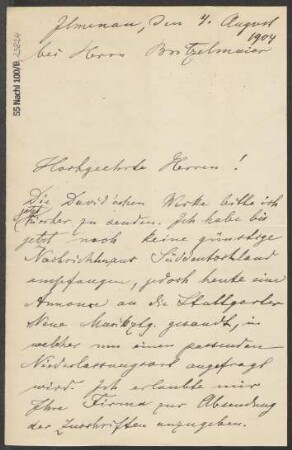 Ilmenau, den 4. August
1904
bei Herrn Britzelmaier
55 Nachl 100/B
Hochgeehrte Herren!
Die David'schen Werke bitte ich
jetzt hierher zu senden. Ich habe bis
jetzt noch keine günstige
Nachricht aus Süddeutschland
empfangen, jedoch heute eine
Annonce an die Stuttgarter
Neue Musikztg. gesandt, in
welcher um einen passenden
Niederlassungsort angefragt
wird. Ich erlaubte mir
Ihre Firma zur Absendung
der Zuschriften anzugeben.